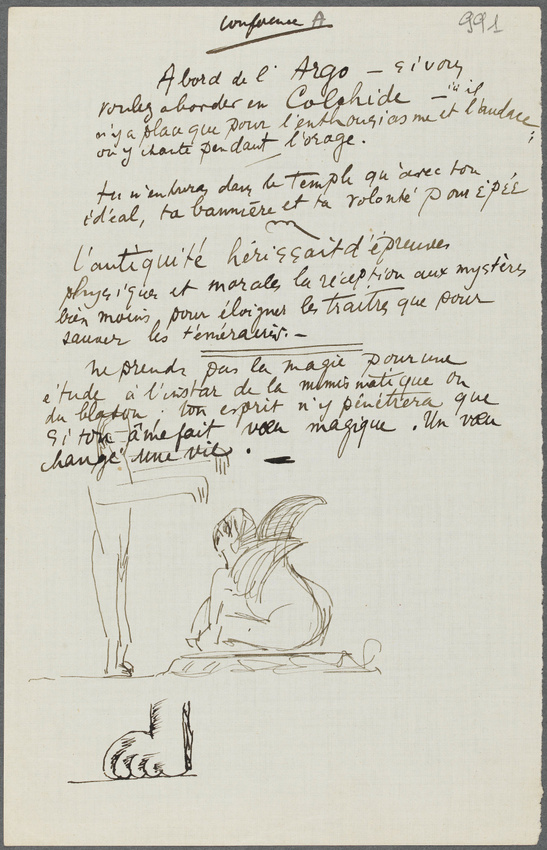 Conférence A
991
A bord de l'Argo – si vous
voulez aborder en Colchide – il
n'y a place que pour l'enthousiasme et l'audace
on y chante pendant l'orage.
tu n'entreras dans le Temple qu'avec ton
idéal, ta bannière et ta volonté pour épée
l'antiquité hérissait d'épreuves
physiques et morales la réception aux mystères
bien moins pour éloigner les traitres que pour
sauver les téméraires. –
ne prends pas la magie pour une
étude à l'instar de la numismatique ou
du blason. ton esprit n'y pénétrera que
si ton âme fait vœu magique. Un vœu
change une vie.